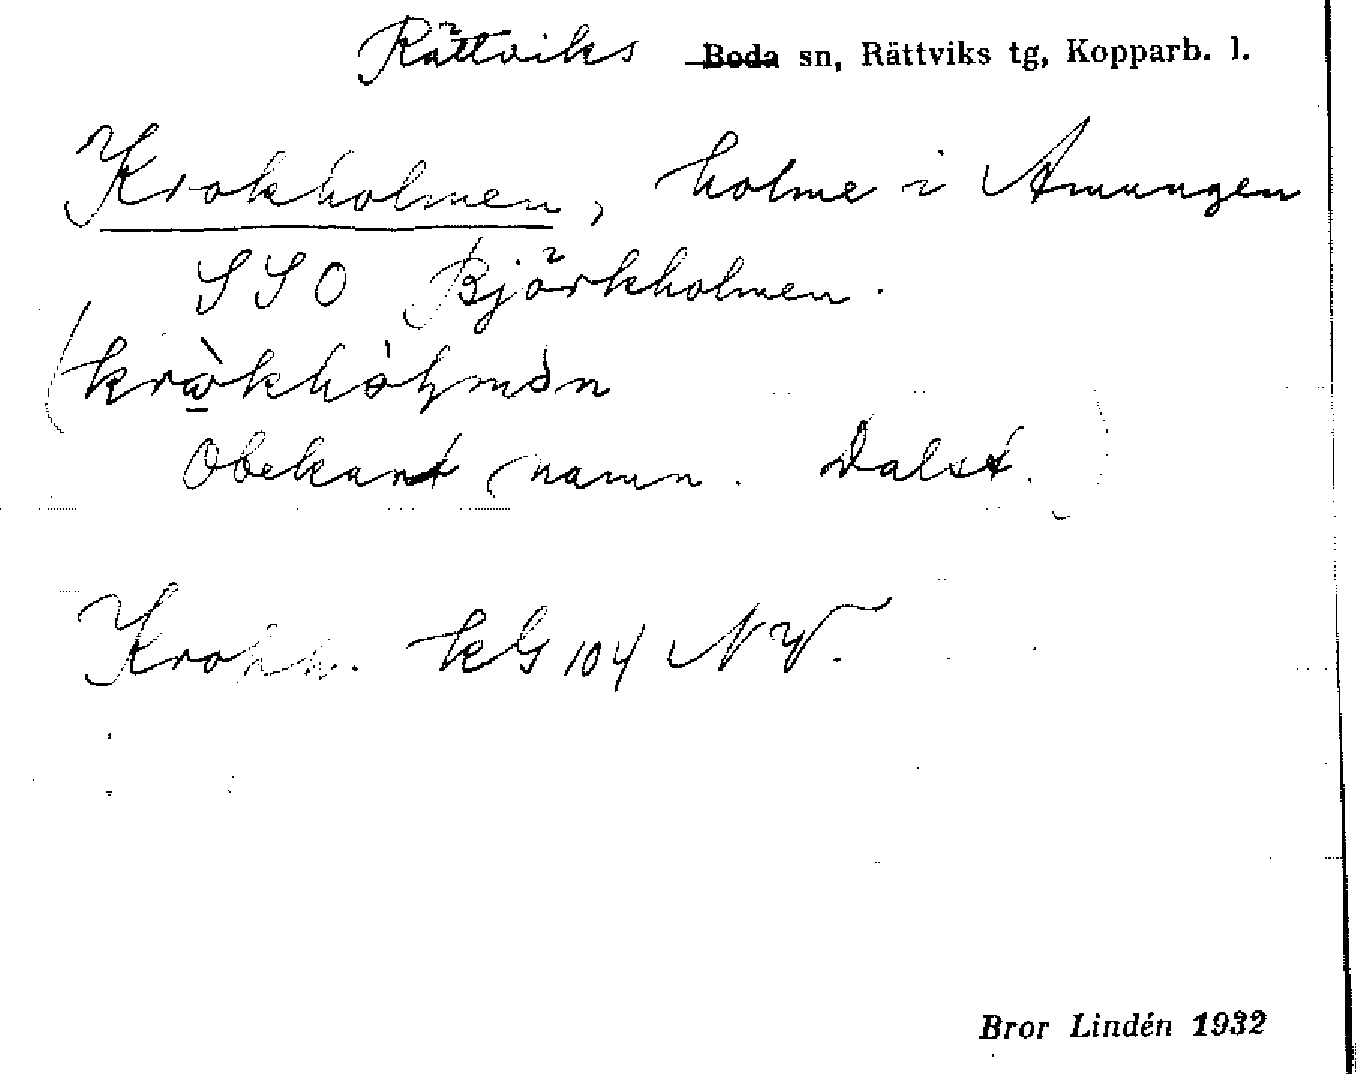 Rättviks Boda sn, Rättviks tg, Kopparb. l.
Krokholmen, holme i Amungen
SSO Björkholmen.
Obekant namn. Dalst.)
Krokh. kG 104 NV.
Bror Lindén 1932